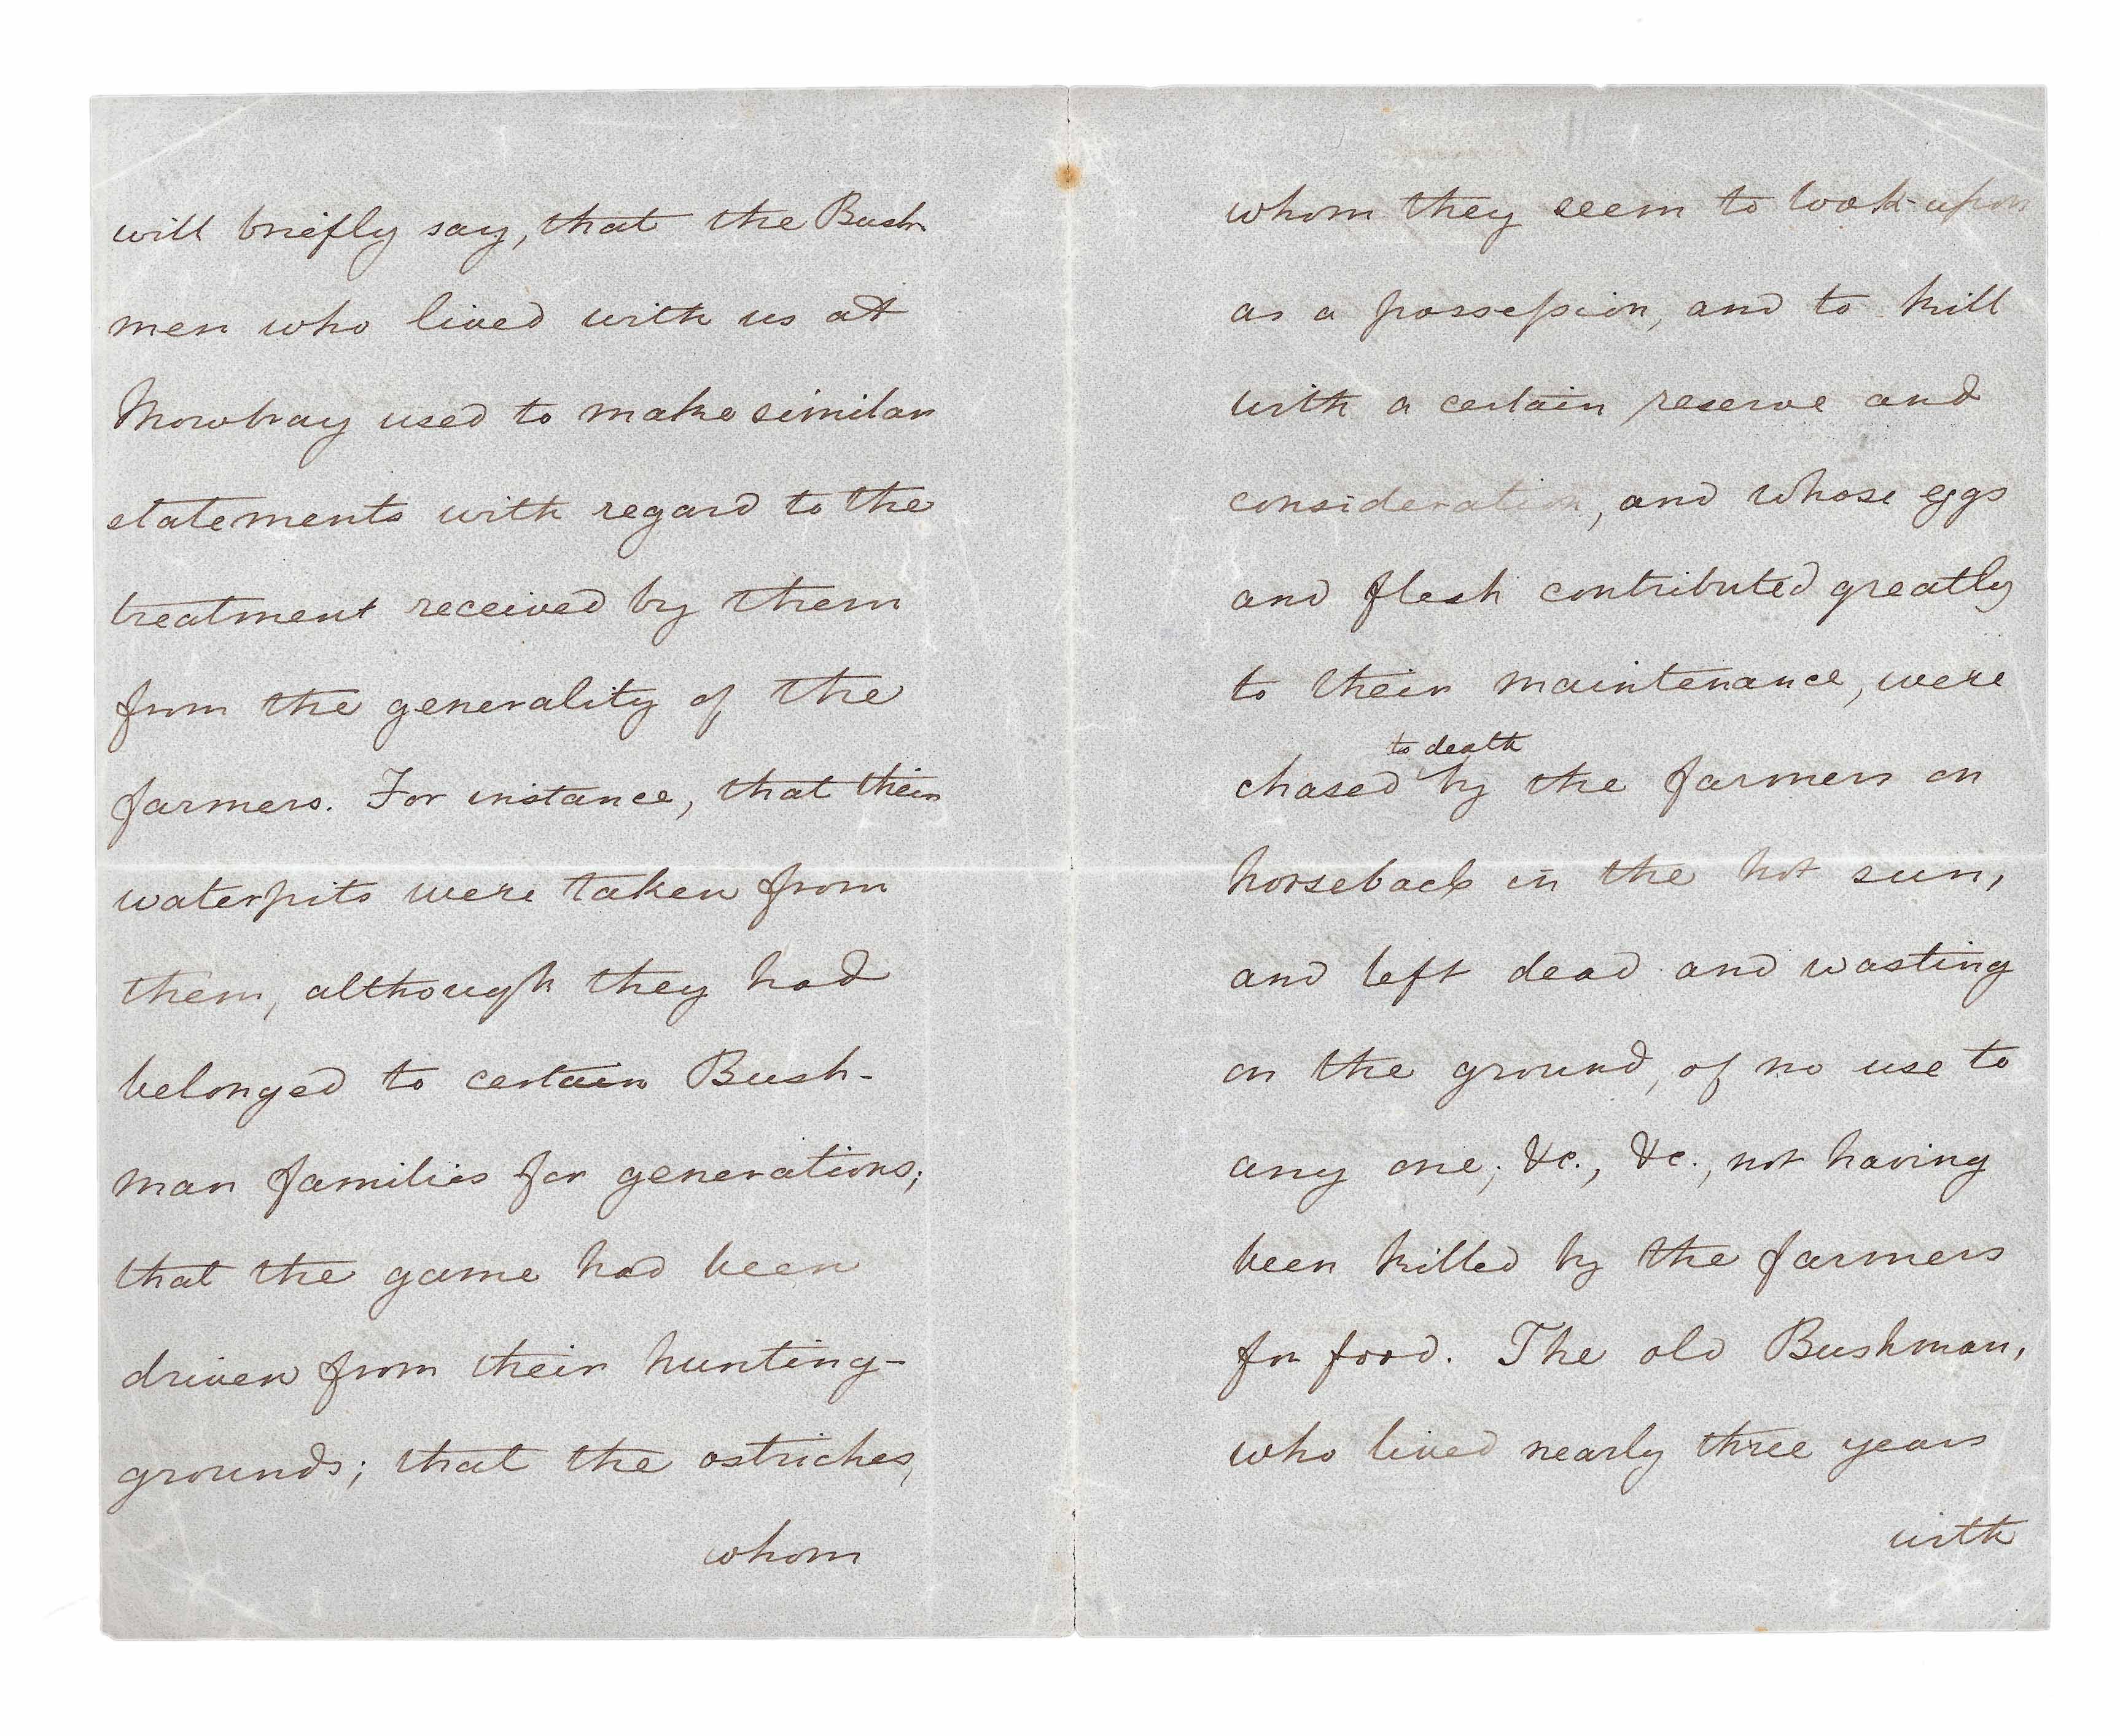 will briefly say, that the Bush-
men who lived with us at
Mowbray used to make similar
statements with regard to the
treatment received by them
from the generality of the
farmers. For instance, that their
waterpits were taken from
them, although they had
belonged to certain Bush-
man families for generations;
that the game had been
driven from their hunting-
grounds; that the ostriches,
whom
whom they seem to look upon
as a possession, and to kill
with a certain reserve and
consideration, and whose eggs
and flesh contributed greatly
to their maintenance, were
to death
chased by the farmers on
horseback in the hot sun,
and left dead and wasting
on the ground, of no use to
any one; &c., &c., not having
been killed by the farmers
for food. The old Bushman,
who lived nearly three years
with